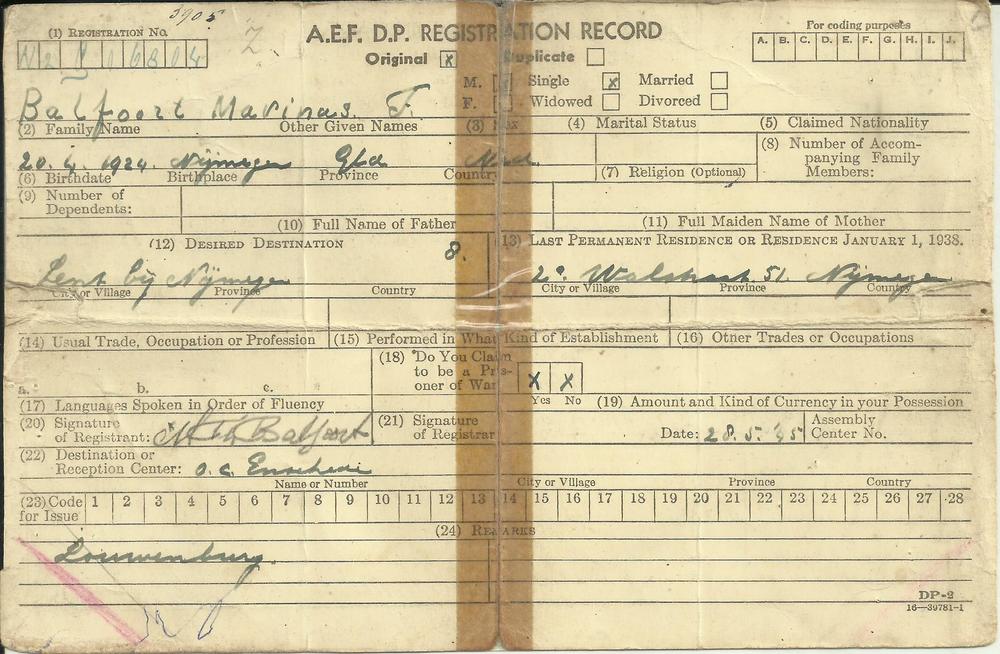 3905
(1) Registration No.
A.E.F. D.P. REGISTRATION RECORD
For coding purposes
A. B. C. D. E. F. G. H. I. J.
Original X Duplicate
M. Single X Married
F. Widowed Divorced
Balfoort Marinus. F.
(2) Family Name Other Given Names (3) Sex (4) Marital Status (5) Claimed Nationality
20. 4. 1924 Nijmegen Gld Ned.
(6) Birthdate Birthplace Province Country (7) Religion (Optional) (8) Number of Accompanying Family Members:
(9) Number of Dependents:
(10) Full Name of Father (11) Full Maiden Name of Mother
(12) Desired Destination 8. (13) Last Permanent Residence or Residence January 1, 1938.
Lent bij Nijmegen 51 Nijmegen
City or Village Province Country City or Village Province Country
(14) Usual Trade, Occupation or Profession (15) Performed in What Kind of Establishment (16) Other Trades or Occupations
(18) Do You Claim to be a Prisoner of War X X
a. b. c. Yes No
(17) Languages Spoken in Order of Fluency (19) Amount and Kind of Currency in your Possession
(20) Signature of Registrant: Balfoort (21) Signature of Registrar Date: 28. 5. '45 Assembly Center No.
(22) Destination or Reception Center: o.c. Enschede
Name or Number City or Village Province Country
(23) Code for Issue 1 2 3 4 5 6 7 8 9 10 11 12 13 14 15 16 17 18 19 20 21 22 23 24 25 26 27 28
(24) Remarks
Louwenburg.
DP-2
16—39781-1